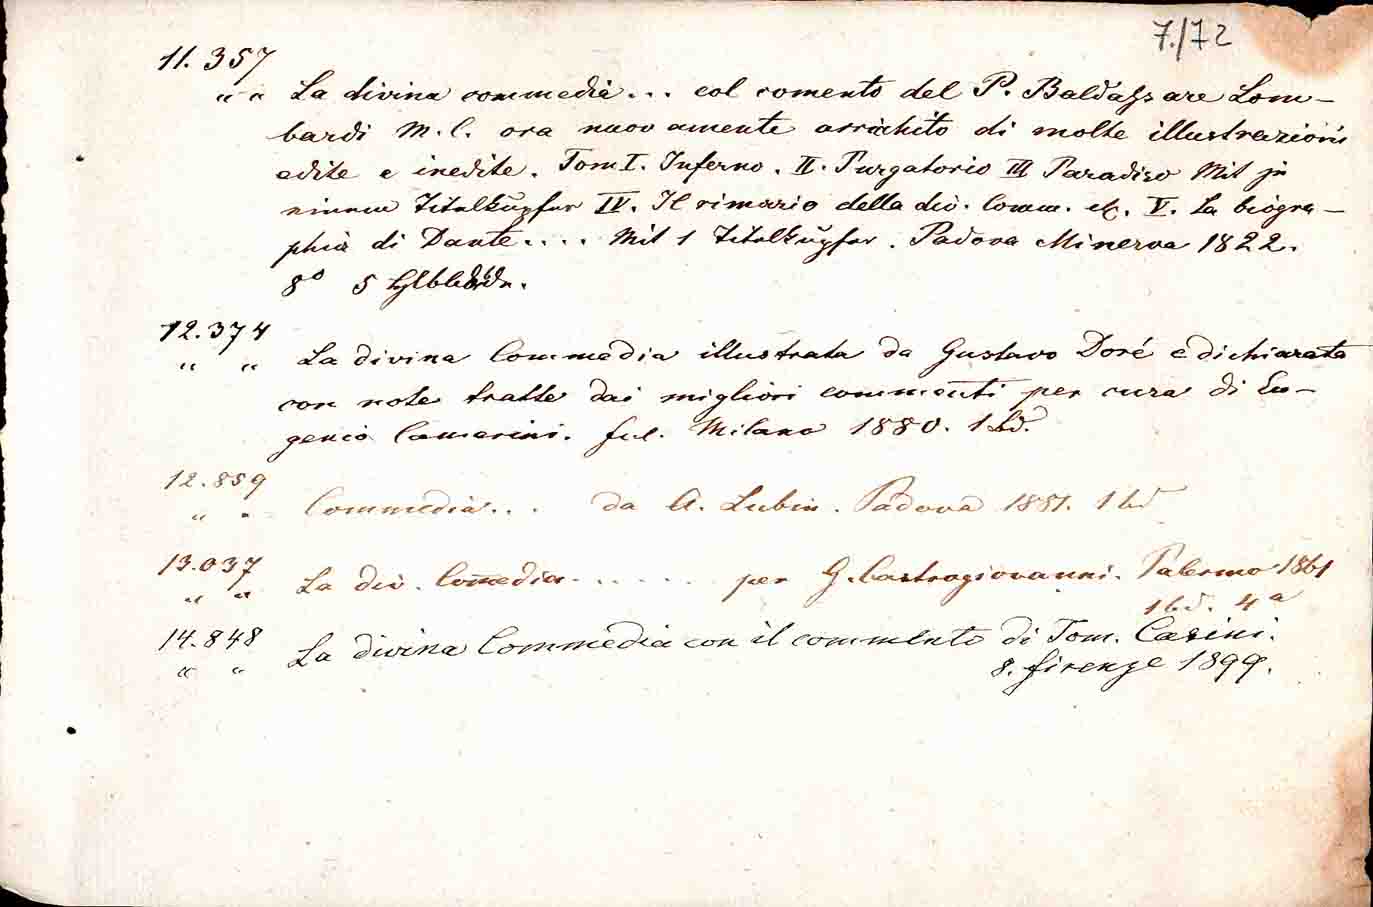 7./72
11.357
" " La divina commedia... col comento del P. Baldassare Lom-
bardi M. C. ora nuovamente arrichito di molte illustrazioni
edite e inedite. Tom I. Inferno. II. Purgatorio III Paradiso Mit je
einem Titelkupfer IV. Il rimario della div. Comm. etc. V. La biogra-
phia di Dante.... Mit 1 Titelkupfer. Padova Minerva 1822.
8° 5
12.374
" " La divina Commedia illustrata da Gustavo Doré e dichiarata
con note tratte dai migliori commenti per cura di Eu-
genio Camerini. fol. Milano 1880. 1 bd.
12.859
" " Commedia... da A. Lubin. Padova 1881. 1 bd
13.037
" " La div. Com̄edia....... per G. Castrogiovanni. Palermo 1861
1 bd. 4°
14.848
" " La divina Commedia con il commento di Tom. Casini.
8. firenze 1899.